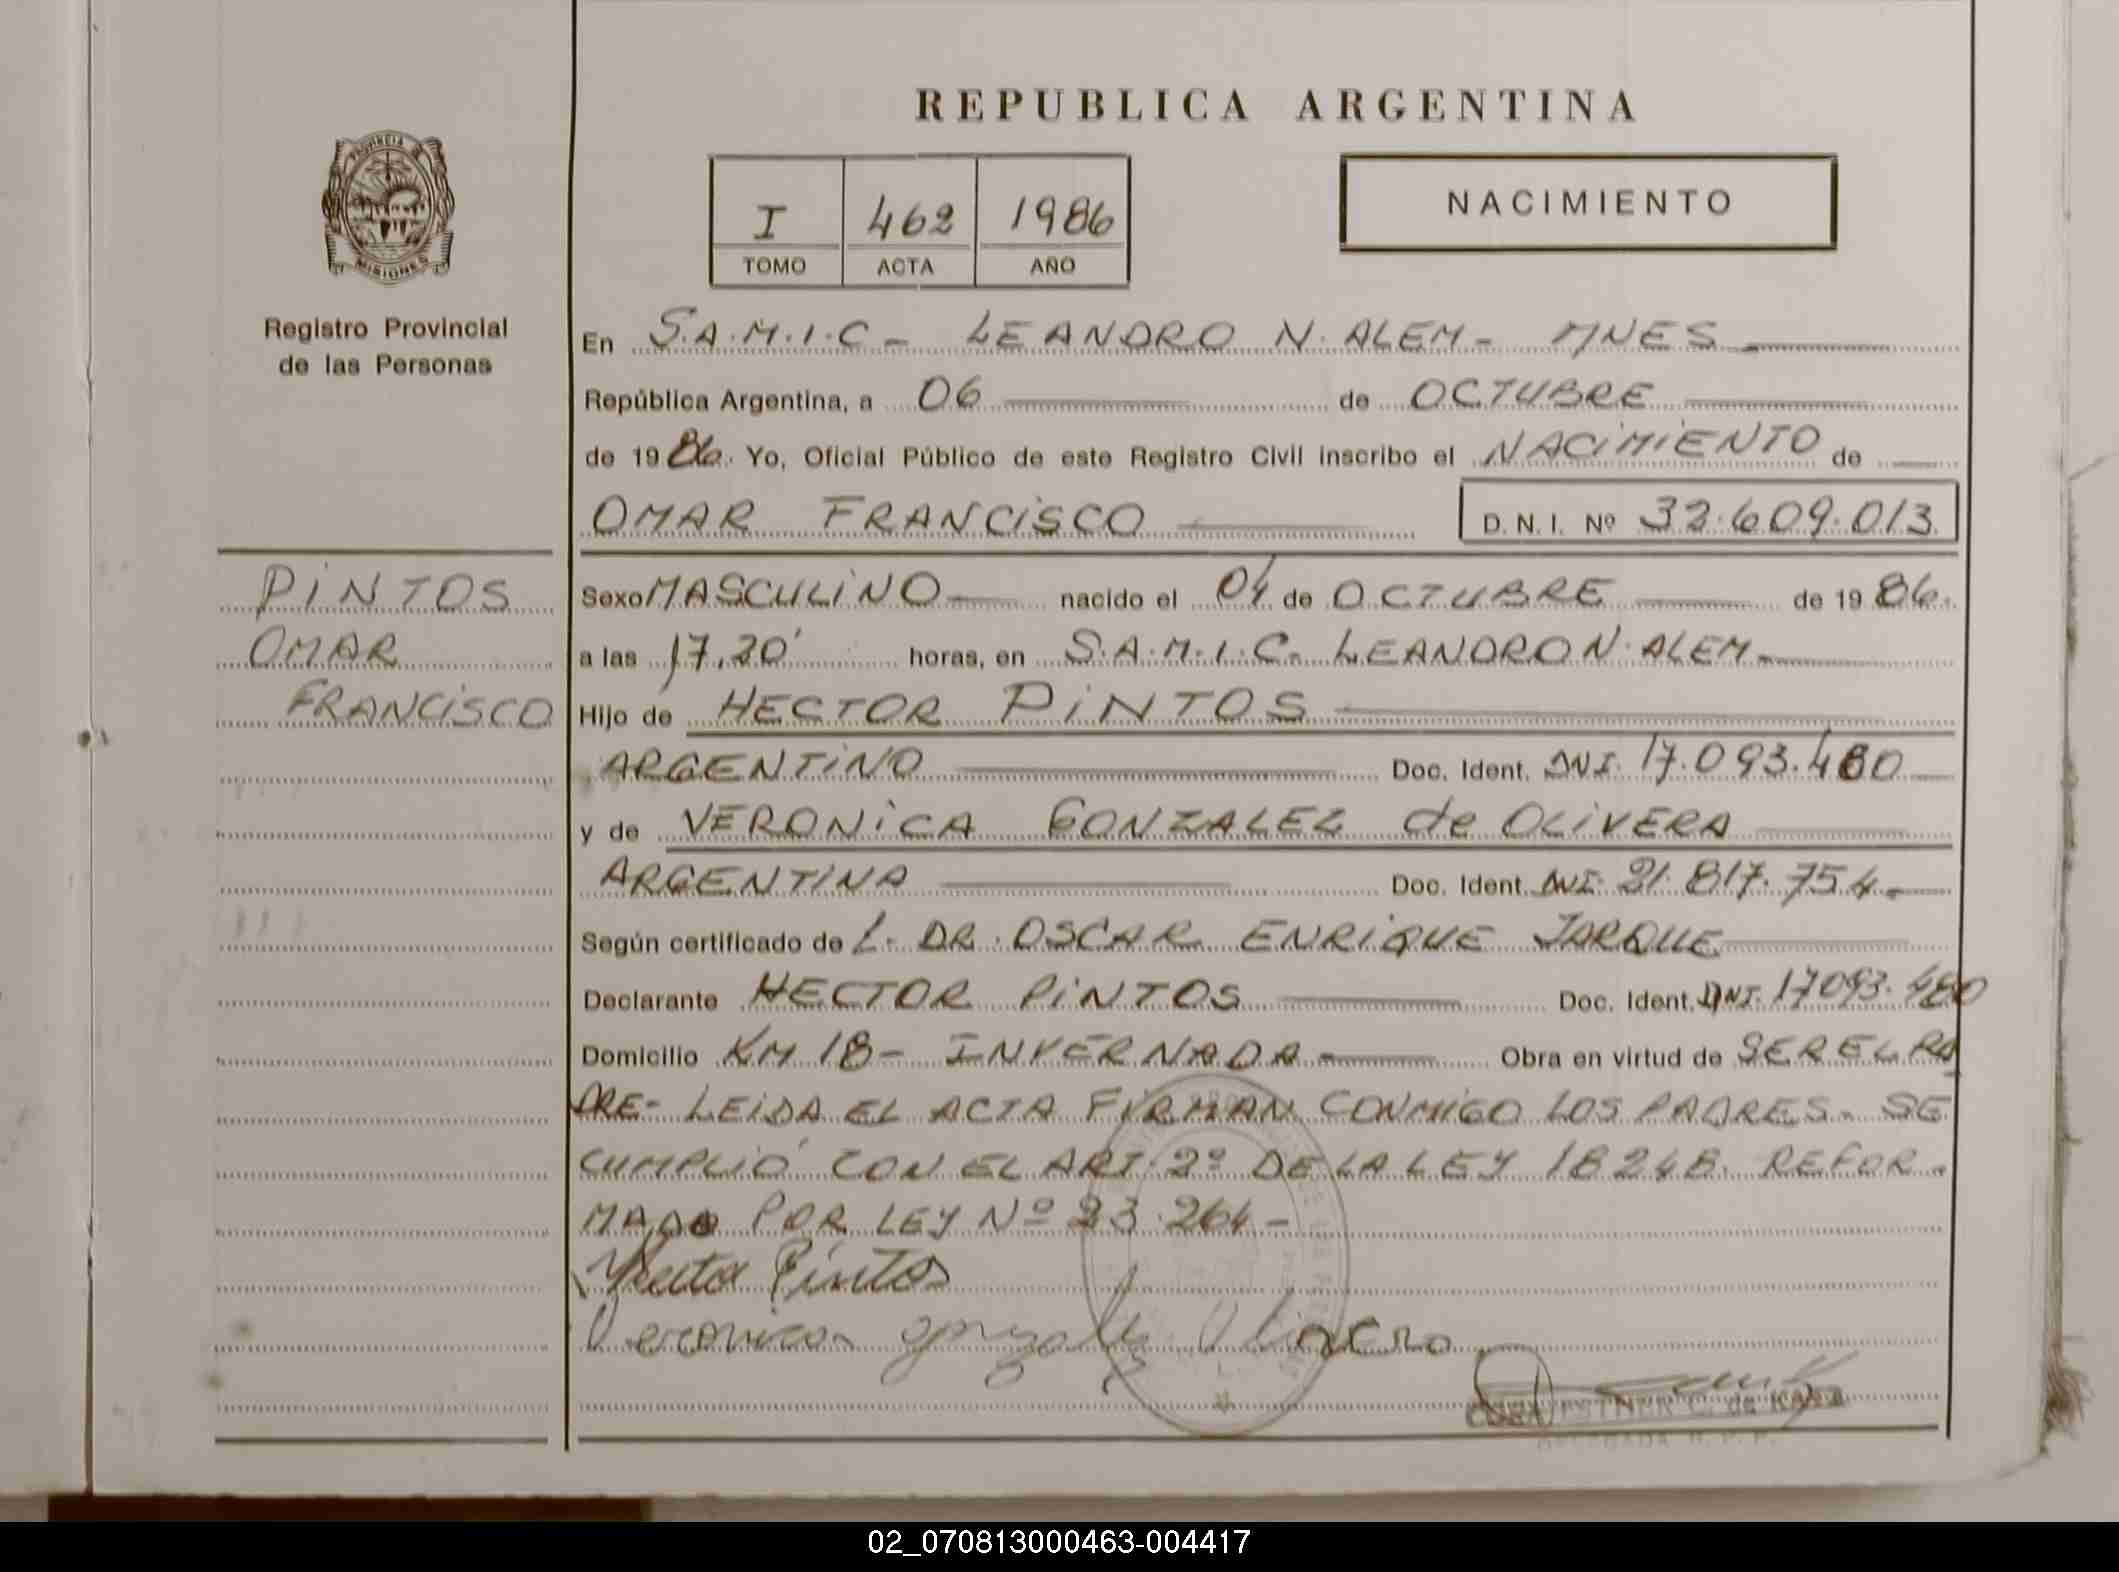 REPUBLICA ARGENTINA
PROVINCIA DE
MISIONES
Registro Provincial
de las Personas
I 462 1986
TOMO ACTA AÑO
NACIMIENTO
En S.A.M.I.C - LEANDRO N. ALEM - MNES
República Argentina, a 06 de OCTUBRE
de 1986. Yo, Oficial Público de este Registro Civil inscribo el NACIMIENTO de
OMAR FRANCISCO D.N.I. Nº 32.609.013
PINTOS
OMAR
FRANCISCO
Sexo MASCULINO nacido el 04 de OCTUBRE de 1986.
a las 17,20' horas, en S.A.M.I.C. LEANDRO N. ALEM -
Hijo de HECTOR PINTOS
ARGENTINO Doc. Ident. DNI. 17.093.480
y de VERONICA GONZALEZ de OLIVERA
ARGENTINA Doc. Ident. DNI. 21.817.754 -
Según certificado de L. DR. OSCAR ENRIQUE JARQUE
Declarante HECTOR PINTOS Doc. Ident. DNI. 17093.480
Domicilio KM 18 - INVERNADA - Obra en virtud de SER EL PA
DRE - LEIDA EL ACTA FIRMAN CONMIGO LOS PADRES. SE
CUMPLIÓ CON EL ART. 2º DE LA LEY 18248. REFOR.
MADO POR LEY Nº 23.264 -
Pintos
Veronica
02_070813000463-004417